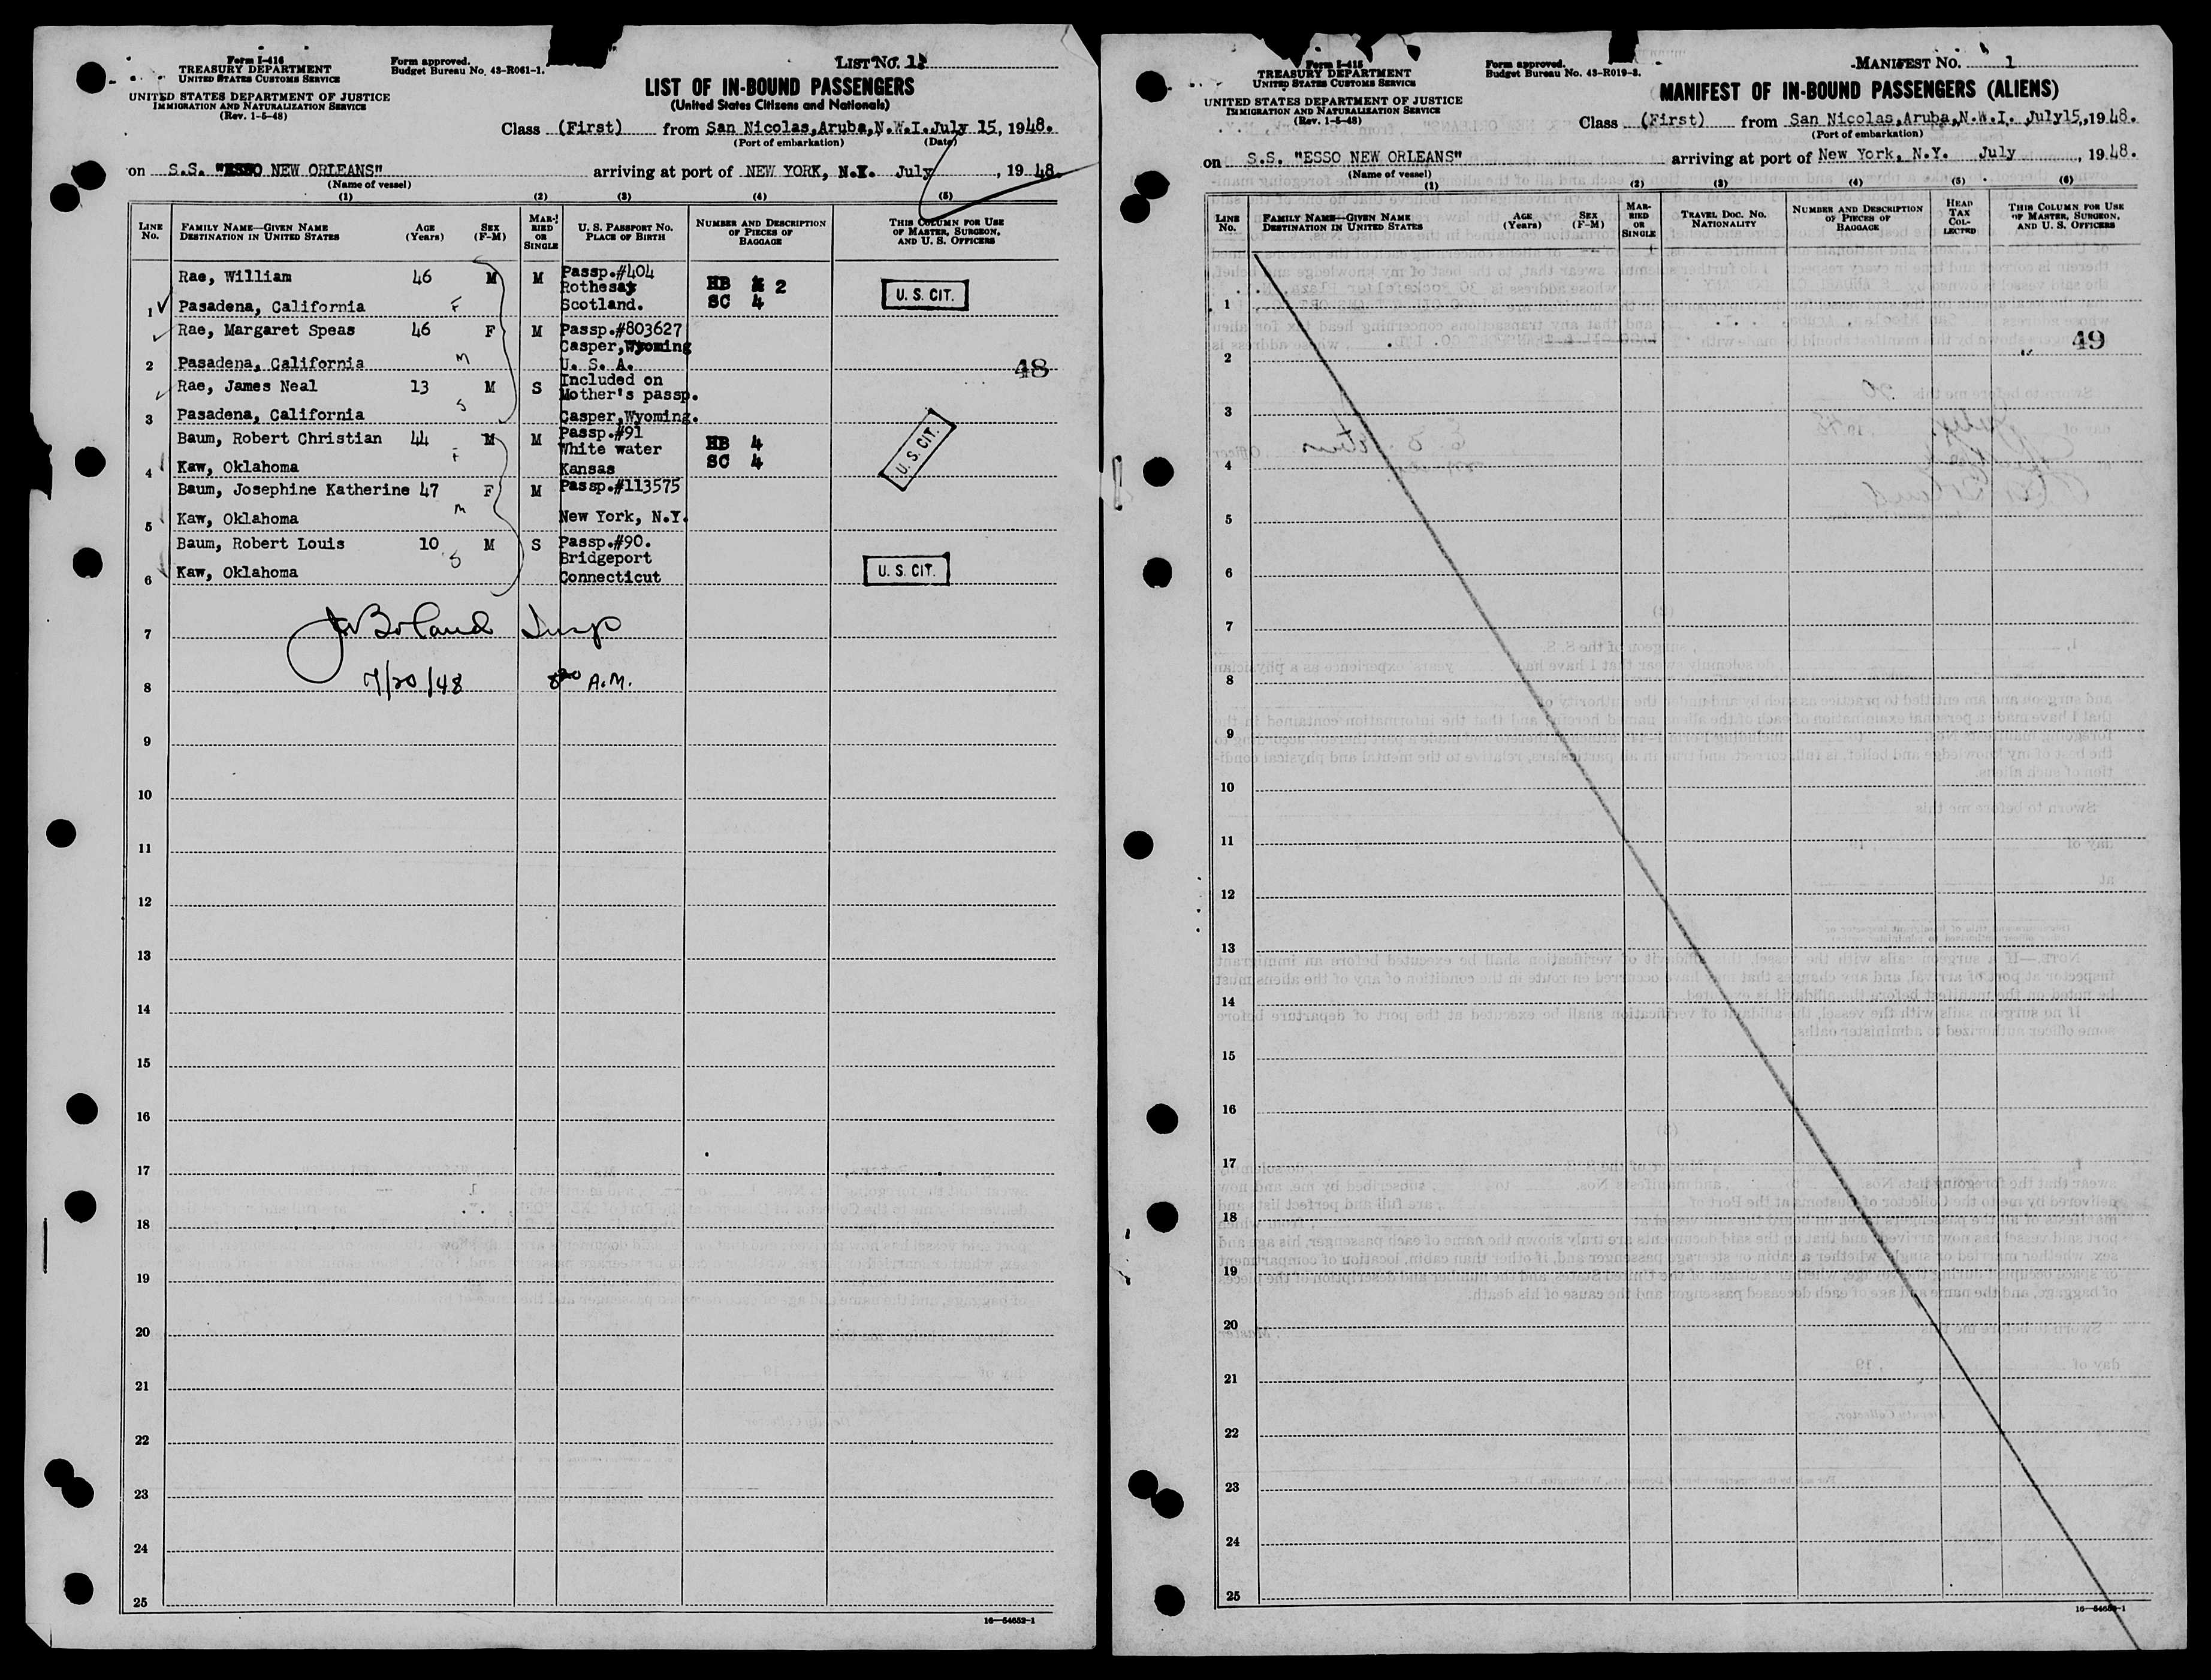 Form I-416
TREASURY DEPARTMENT
UNITED STATES CUSTOMS SERVICE
UNITED STATES DEPARTMENT OF JUSTICE
IMMIGRATION AND NATURALIZATION SERVICE
(Rev. 1-5-48)
Form approved.
Budget Bureau No. 43-R061-1.
LIST NO. 1
LIST OF IN-BOUND PASSENGERS
(United States Citizens and Nationals)
Class (First) from San Nicolas, Aruba, N.W.I. July 15, 1948.
(Port of embarkation) (Date)
on S.S. "ESSO NEW ORLEANS" arriving at port of NEW YORK, N.Y. July , 1948.
(Name of vessel)
(1) (2) (3) (4) (5)
LINE No. FAMILY NAME—GIVEN NAME DESTINATION IN UNITED STATES AGE (Years) SEX (F-M) MARRIED OR SINGLE U. S. PASSPORT NO. PLACE OF BIRTH NUMBER AND DESCRIPTION OF PIECES OF BAGGAGE THIS COLUMN FOR USE OF MASTER, SURGEON, AND U. S. OFFICERS
Rae, William 46 M M Passp.#404
Rothesay HB 2
1 Pasadena, California F Scotland. SC 4 U. S. CIT.
Rae, Margaret Speas 46 F M Passp.#803627
Casper, Wyoming
2 Pasadena, California M U. S. A. 48
Rae, James Neal 13 M S Included on
Mother's passp.
3 Pasadena, California S Casper, Wyoming.
Baum, Robert Christian 44 M M Passp.#91
White water HB 4
4 Kaw, Oklahoma F Kansas SC 4 U. S. CIT.
Baum, Josephine Katherine 47 F M Passp.#113575
5 Kaw, Oklahoma M New York, N.Y.
Baum, Robert Louis 10 M S Passp.#90.
Bridgeport
6 Kaw, Oklahoma S Connecticut U. S. CIT.
7 Boland Insp
8 7/20/48 8 20 A.M.
9
10
11
12
13
14
15
16
17
18
19
20
21
22
23
24
25
16—54652-1
Form I-415
TREASURY DEPARTMENT
UNITED STATES CUSTOMS SERVICE
UNITED STATES DEPARTMENT OF JUSTICE
IMMIGRATION AND NATURALIZATION SERVICE
(Rev. 1-5-48)
Form approved.
Budget Bureau No. 43-R019-3.
MANIFEST NO. 1
MANIFEST OF IN-BOUND PASSENGERS (ALIENS)
Class (First) from San Nicolas, Aruba, N.W.I. July 15, 1948.
(Port of embarkation)
on S.S. "ESSO NEW ORLEANS" arriving at port of New York, N.Y. July , 1948.
(Name of vessel)
(1) (2) (3) (4) (5) (6)
LINE No. FAMILY NAME—GIVEN NAME DESTINATION IN UNITED STATES AGE (Years) SEX (F-M) MARRIED OR SINGLE TRAVEL DOC. NO. NATIONALITY NUMBER AND DESCRIPTION OF PIECES OF BAGGAGE HEAD TAX COLLECTED THIS COLUMN FOR USE OF MASTER, SURGEON, AND U. S. OFFICERS
1
49
2
3
4
5
6
7
8
9
10
11
12
13
14
15
16
17
18
19
20
21
22
23
24
25